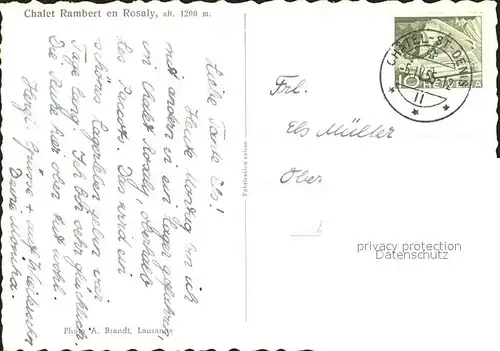 Chalet Rambert en Rosaly, alt. 1200 m.
Liebe Tante Els!
Heute Montag bin ich
mit andern in ein Lager gefahren,
im Chalet Rosaly, oberhalb
Les Paccots. Das wird ein
schönes Lagerleben geben vier
Tage lang. Ich bin sehr glücklich.
Die Ruhe hier oben tut wohl.
Herzl. Grüsse + auf Wiedersehn
Deine Monika.
Photo A. Brandt, Lausanne
Fabrication suisse
CHÂTEL-ST-DENIS
10 HELVETIA
Frl.
Els Müller
Ober
privacy protection
Datenschutz